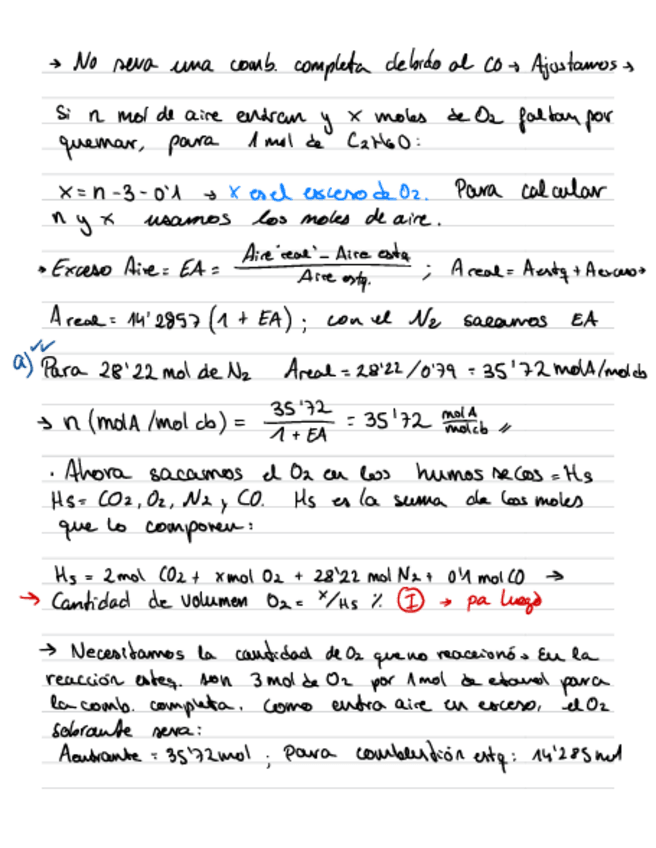 → No sera una comb. completa debido al CO → Ajustamos →
Si n mol de aire entran y x moles de O2 faltan por
quemar, para 1 mol de C2H6O:
x = n - 3 - 0'1 → x es el exceso de O2. Para calcular
n y x usamos los moles de aire.
• Exceso Aire = EA = (Aire 'real' - Aire estq) / Aire estq. ; Areal = Aestq + Aexceso →
Areal = 14'2857 (1 + EA) ; con el N2 sacamos EA
a) Para 28'22 mol de N2 Areal = 28'22/0'79 = 35'72 molA/molcb
→ n (molA/mol cb) = 35'72 / (1 + EA) = 35'72 molA/molcb //
· Ahora sacamos el O2 en los humos secos = Hs
Hs = CO2, O2, N2 y CO. Hs es la suma de los moles
que lo componen:
Hs = 2mol CO2 + xmol O2 + 28'22 mol N2 + 0'1 mol CO →
→ Cantidad de volumen O2 = x/Hs % I → pa luego
→ Necesitamos la cantidad de O2 que no reaccionó → En la
reacción esteq. son 3 mol de O2 por 1mol de etanol para
la comb. completa. Como entra aire en exceso, el O2
sobrante sera:
Aentrante = 35'72mol ; Para combustión estq: 14'285mol